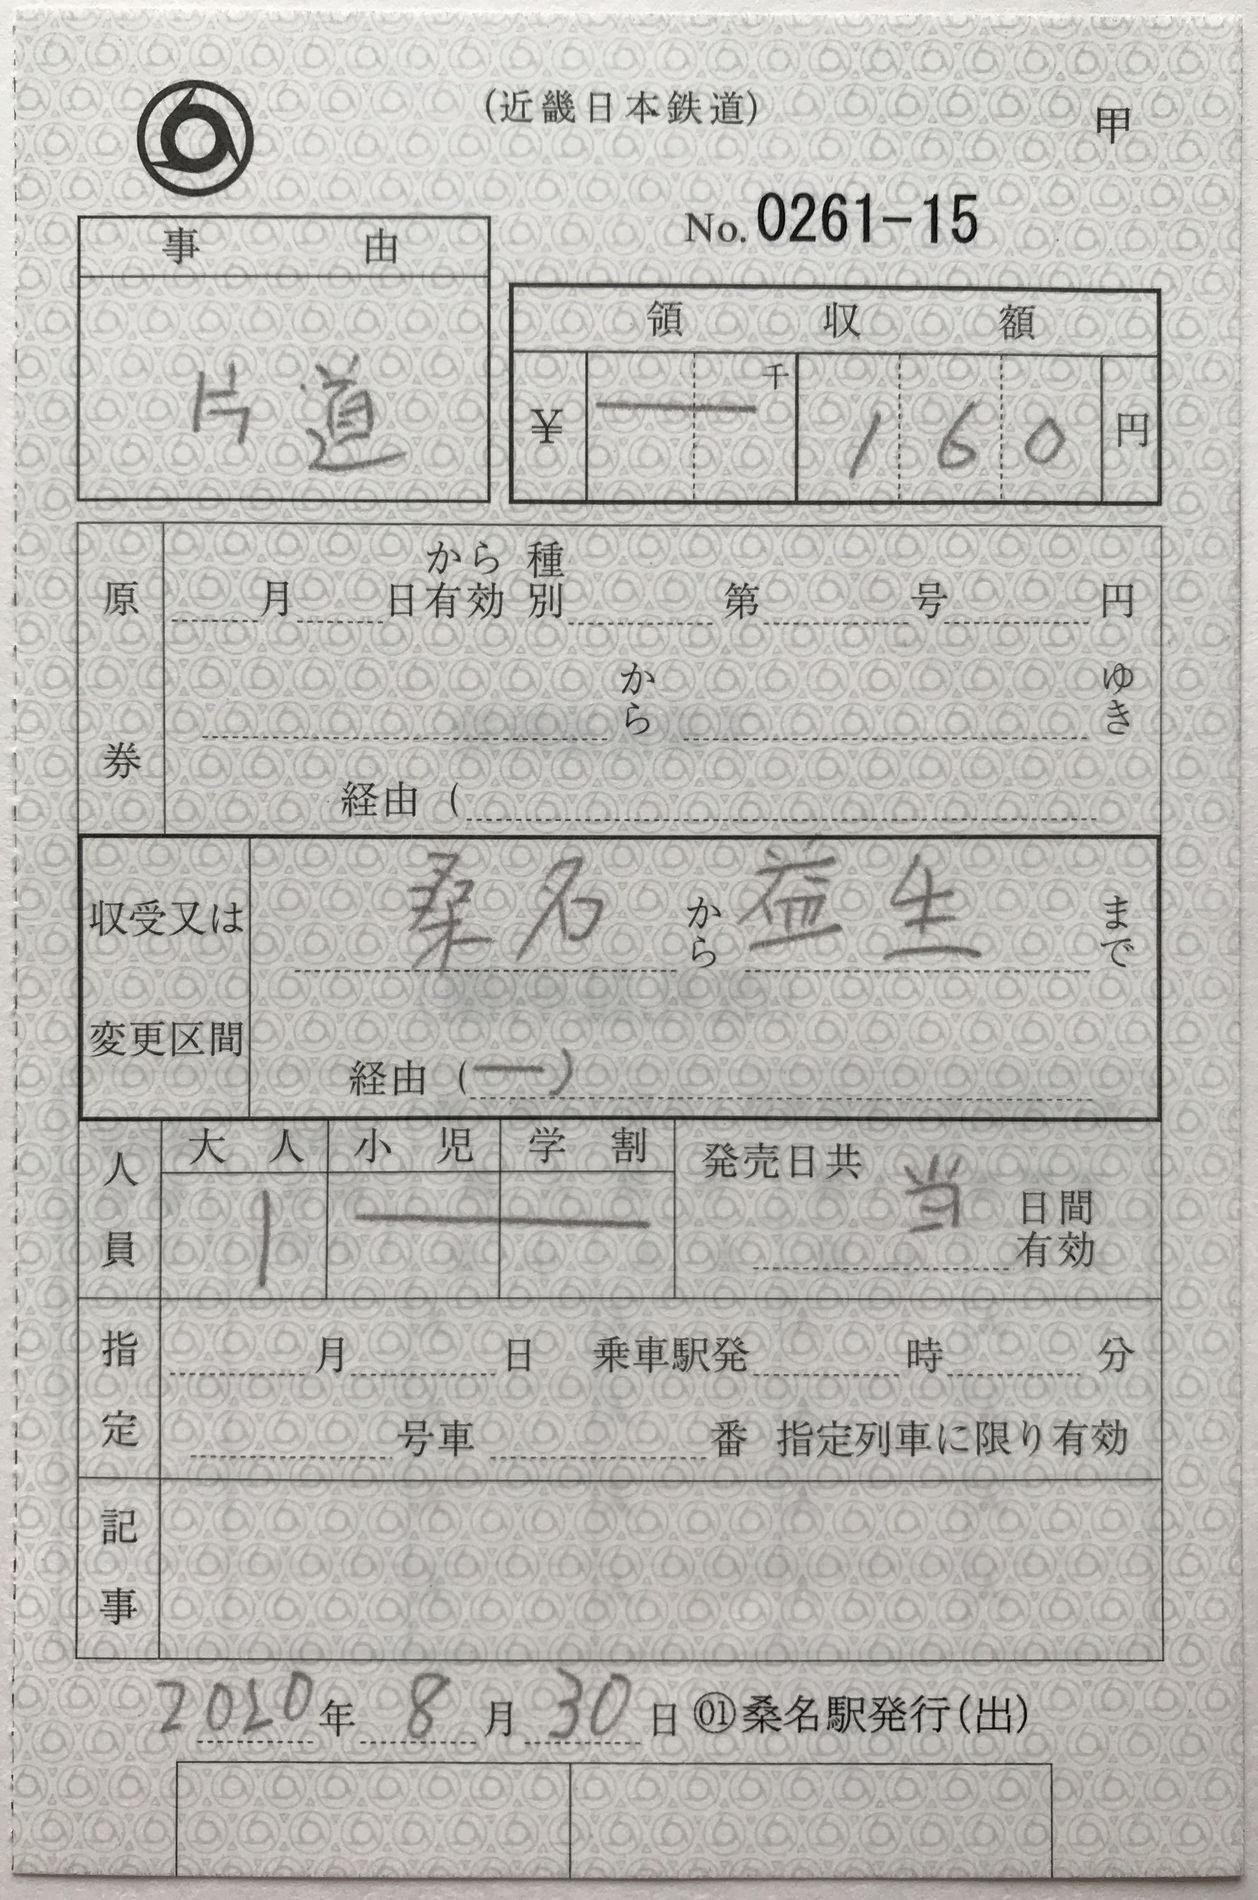 (近畿日本鉄道)
甲
No. 0261-15
事由
片道
領収額
¥ ― 千 160 円
原券
月 日から有効 種別 第 号 円
から ゆき
経由(
収受又は変更区間
桑名から益生まで
経由(―)
人員
大人 小児 学割
1 ―
発売日共 当 日間有効
指定
月 日 乗車駅発 時 分
号車 番 指定列車に限り有効
記事
2020年8月30日 ㊀桑名駅発行(出)